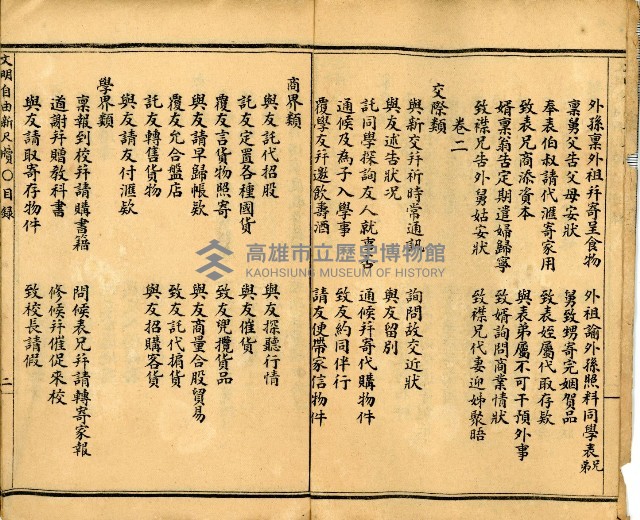 外孫稟外祖幷寄呈食物　外祖諭外孫照料同學表兄弟
稟舅父告父母安狀　舅致甥寄完姻賀品
奉表伯叔請代滙寄家用　致表姪屬代取存欵
致表兄商添資本　與表弟屬不可干預外事
婿稟翁告定期遣婦歸寧　致婿詢問商業情狀
致襟兄告外舅姑安狀　致襟兄代妻迎姊聚晤
卷二
交際類
與新交幷祈時常通訊　詢問故交近狀
與友述告狀况　與友留別
託同學探詢友人就事否　通候幷寄代購物件
通候及爲子入學事　致友約同伴行
覆學友幷邀飲壽酒　請友便帶家信物件
商界類
與友託代招股　與友探聽行情
託友定置各種國貨　與友催貨
覆友言貨物照寄　致友兜攬貨品
與友請早歸帳欵　與友商量合股貿易
覆友允合盤店　致友託代掮貨
託友轉售貨物　與友招購客貨
與友請友付滙欵
學界類
稟報到校幷請購書籍　問候表兄幷請轉寄家報
道謝幷贈教科書　修候幷催促來校
與友請取寄存物件　致校長請假
文明自由新尺牘○目錄　二
高雄市立歷史博物館
KAOHSIUNG MUSEUM OF HISTORY